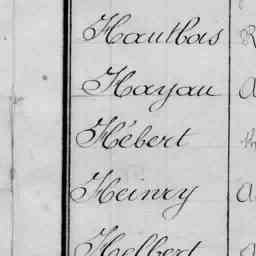 Hautbas R
Hayau A
Hébert
Heinry A
Helbert